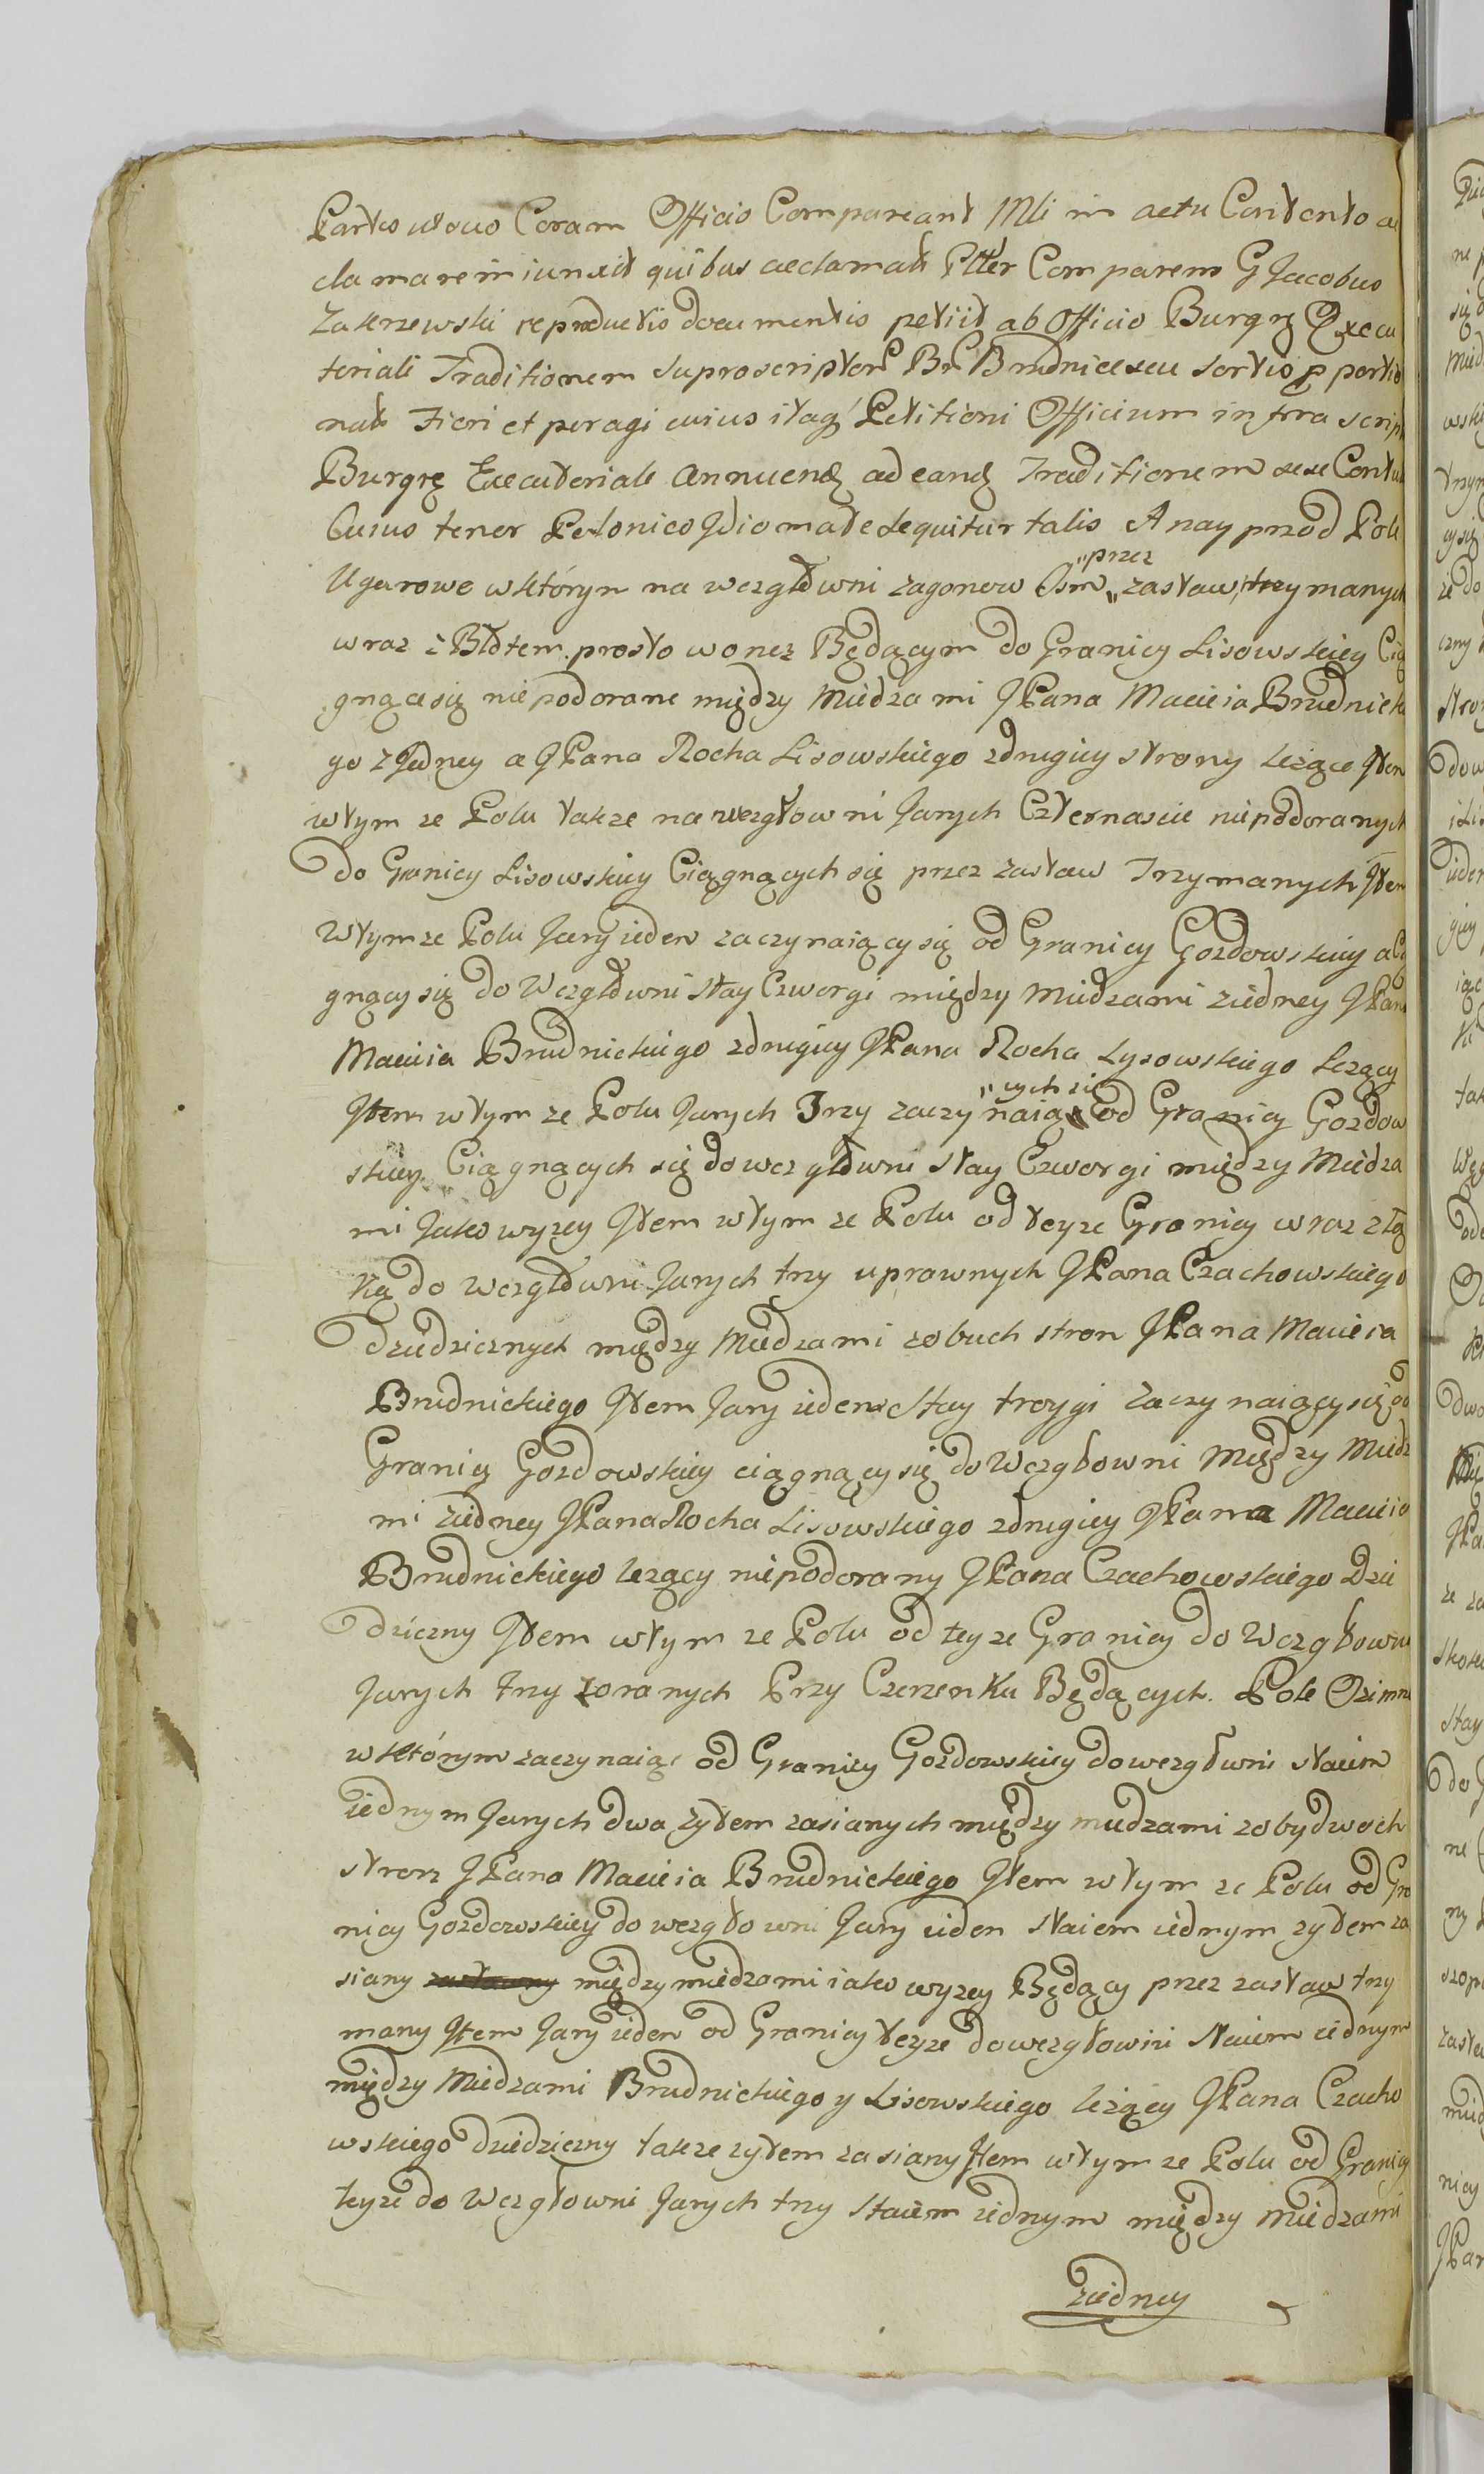 Partes utouo Coram Officio Compareant Mli in actu Contento ac
clamare in iunxit quibus acclamatis Ptter Comparens G Jacobus
Zakrzewski reproductis documentis petiit ab Officio Burgrę Execu
toriali Traditionem suproscriptor Br Brudnice seu sortis p portio
nats Fieri et peragi cuius itaq Petitioni Officium infra script
Burgrę Executoriale Annuendo ad eand Traditionem sese Contul
Cuius tenor Polonico Jdiomate sequitur talis A nay przod Pole
Ugorowe w którym na wezgłowni zagonow Osm „przez„ zastaw trzymanych
wraz z Błotem prosto wonez Będącym do Granicy Lisowskiey Cią
gnące się niepodorane między Miedzami JPana Macieia Brudnicki
go z Jedney a JPana Rocha Lisowskiego z drugiey strony leżące Jtem
wtym ze Polu takze na wezgłowni Jarych Czternascie niepodoranych
do Granicy Lisowskiey Ciągnących się przez zastaw Trzymanych Jtem
Wtymze Polu Jary ieden zaczynaiący się od Granicy Gozdowskiey a Cią
gnący się do Wezgłowni stay Czworgi między Miedzami ziedney JPana
Macieia Brudnickiego z drugiey JPana Rocha Lysowskiego leżący
Jtem wtym ze Polu Jarych Trzy zaczynaią „cych się od Granicy Gozdow
skiey Ciągnących się do wezgłowni stay Czworgi między Miedza
mi Jako wyzey Jtem wtym ze Polu od teyze Granicy wraz z łą
ką do Wezgłowni Jarych trzy uprawnych JPana Czachowskiego
dziedzicznych między Miedzami zobuch stron JPana Macieia
Brudnickiego Jtem Jary ieden stay troygi zaczynaiący się od
Granicy Gozdowskiey ciągnący się do Wezgłowni Między Miedz
mi ziedney JPana Rocha Lisowskiego z drugiey JPana Macieia
Brudnickiego leżący niepodorany JPana Czachowskiego Dzie
dziczny Jtem wtym ze Polu od teyze Granicy do Wezgłowni
Jarych trzy zoranych Przy Czerzenku Będących. Pole Ozimne
w którym zaczynaiąc od Granicy Gozdowskiey do wezgłowni staiem
iednym Jarych dwa żytem zasianych między miedzami zobydwoch
stron JPana Macieia Brudnickiego Jtem wtym ze Polu od Gra
nicy Gozdowskiey do wezgłowni Jary ieden staiem iednym zytem za
siany między miedzami iako wyzey Będący przez zastaw trzy
many Jtem Jary ieden od Granicy teyze do wezgłowni staiem iednym
między Miedzami Brudnickiego y Lisowskiego leżący JPana Czacho
wskiego dziedziczny takze zytem zasiany Jtem wtym ze Polu od Granicy
teyze do Wezgłowni Jarych trzy staiem iednym między Miedzami
ziedney